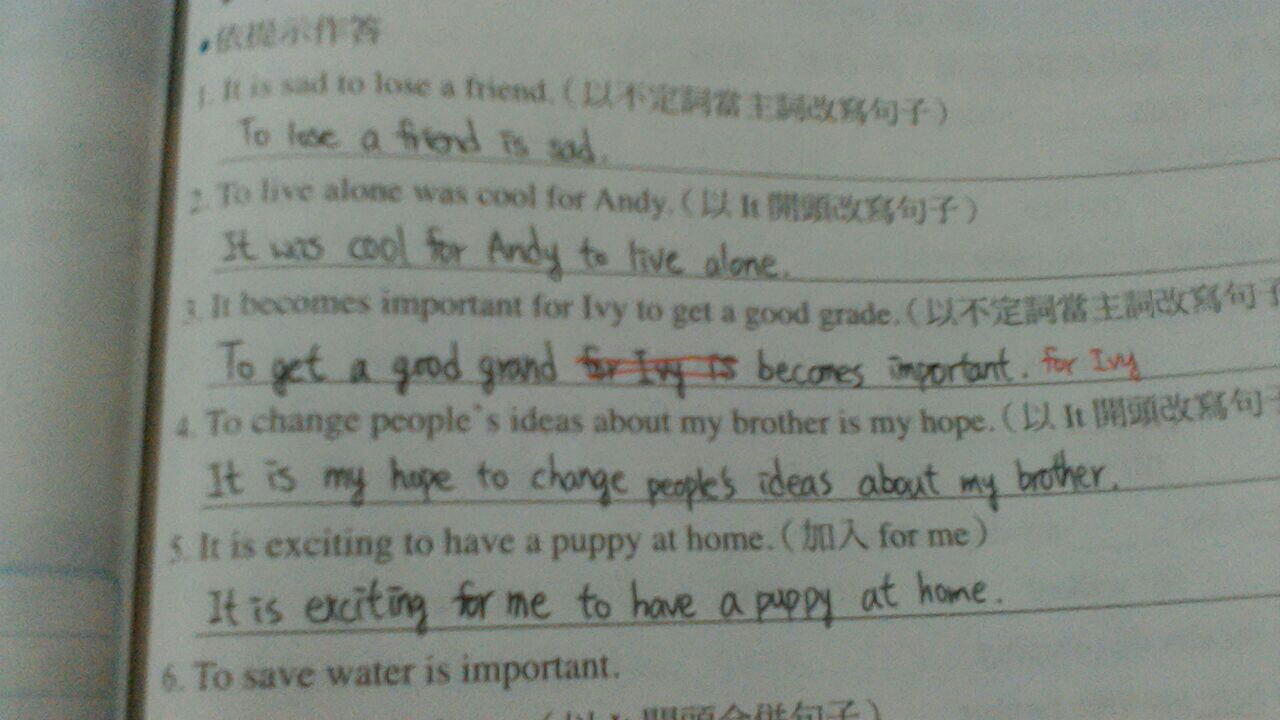 •依提示作答
1. It is sad to lose a friend.(以不定詞當主詞改寫句子)
To lose a friend is sad.
2. To live alone was cool for Andy.(以 It 開頭改寫句子)
It was cool for Andy to live alone.
3. It becomes important for Ivy to get a good grade.(以不定詞當主詞改寫句子
To get a good grand for Ivy is becomes important. for Ivy
4. To change people's ideas about my brother is my hope.(以 It 開頭改寫句子
It is my hope to change people's ideas about my brother.
5. It is exciting to have a puppy at home.(加入 for me)
It is exciting for me to have a puppy at home.
6. To save water is important.
(以 It 開頭合併句子)